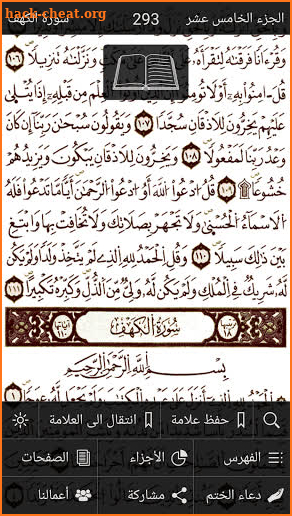 hack-cheat.org
سورة الكهف 293 الجزء الخامس عشر
وَقُرْءَانًا فَرَقْنَٰهُ لِتَقْرَأَهُۥ وَنَزَّلْنَٰهُ تَنزِيلًا ١٠٦
قُلْ ءَامِنُوا۟ بِهِۦٓ أَوْ مِن قَبْلِهِۦٓ إِذَا يُتْلَىٰ
عَلَيْهِمْ يَخِرُّونَ لِلْأَذْقَانِ سُجَّدًا ١٠٧ وَيَقُولُونَ سُبْحَٰنَ رَبِّنَآ إِن كَانَ
وَعْدُ رَبِّنَا لَمَفْعُولًا ١٠٨ وَيَخِرُّونَ لِلْأَذْقَانِ يَبْكُونَ وَيَزِيدُهُمْ
خُشُوعًا ١٠٩ قُلِ ادْعُوا۟ اللَّهَ أَوِ ادْعُوا۟ الرَّحْمَٰنَ أَيًّا مَّا تَدْعُوا۟ فَلَهُ
الْأَسْمَآءُ الْحُسْنَىٰ وَلَا تَجْهَرْ بِصَلَاتِكَ وَلَا تُخَافِتْ بِهَا وَابْتَغِ
بَيْنَ ذَٰلِكَ سَبِيلًا ١١٠ وَقُلِ الْحَمْدُ لِلَّهِ الَّذِى لَمْ يَتَّخِذْ وَلَدًا وَلَمْ يَكُن
لَّهُۥ شَرِيكٌ فِى الْمُلْكِ وَلَمْ يَكُن لَّهُۥ وَلِىٌّ مِّنَ الذُّلِّ وَكَبِّرْهُ تَكْبِيرًۢا ١١١
ترتيبها ١٨ سُورَةُ الْكَهْفِ آياتها ١١٠
بِسْمِ اللَّهِ الرَّحْمَٰنِ الرَّحِيمِ
حفظ علامة انتقال الى العلامة
الفهرس الأجزاء الصفحات
دعاء الختم مشاركة أعمالنا
hack-cheat.org